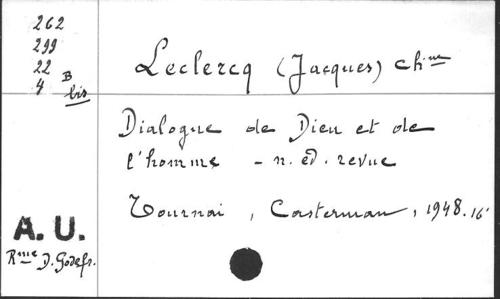 262
299
22
4 B
bis
Leclercq (Jacques) chne
Dialogue de Dieu et de
l'homme - n. éd. revue
Tournai, Casterman, 1948. 16°
A. U.
Rme D. Godefr.